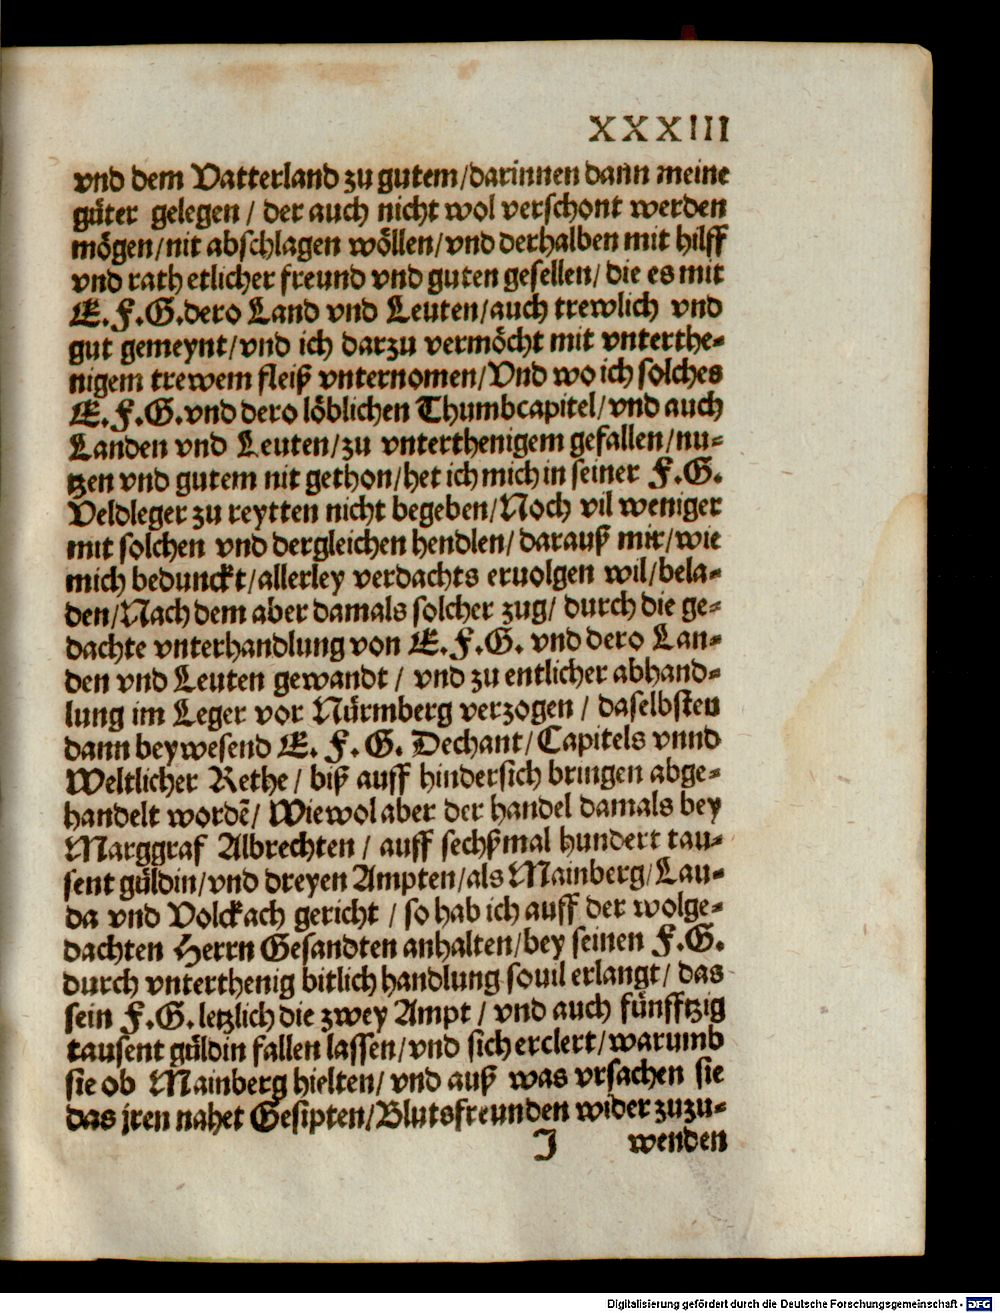 XXXIII
vnd dem Vatterland zu gutem/darinnen dann meine
güter gelegen / der auch nicht wol verschont werden
mögen/nit abschlagen wöllen/vnd derhalben mit hilff
vnd rath etlicher freund vnd guten gesellen/ die es mit
E.F.G.dero Land vnd Leuten/auch trewlich vnd
gut gemeynt/vnd ich darzu vermöcht mit vnterthe-
nigem trewem fleiß vnternomen/Vnd wo ich solches
E.F.G.vnd dero löblichen Thumbcapitel/vnd auch
Landen vnd Leuten/zu vnterthenigem gefallen/nu-
tzen vnd gutem nit gethon/het ich mich in seiner F.G.
Veldleger zu reytten nicht begeben/Noch vil weniger
mit solchen vnd dergleichen hendlen/darauß mir/wie
mich bedunckt/allerley verdachts eruolgen wil/bela-
den/Nach dem aber damals solcher zug/ durch die ge-
dachte vnterhandlung von E.F.G. vnd dero Lan-
den vnd Leuten gewandt / vnd zu entlicher abhand-
lung im Leger vor Nürmberg verzogen / daselbsten
dann beywesend E. F. G. Dechant/Capitels vnnd
Weltlicher Rethe / biß auff hindersich bringen abge-
handelt wordē/ Wiewol aber der handel damals bey
Marggraf Albrechten / auff sechßmal hundert tau-
sent güldin/vnd dreyen Ampten/als Mainberg/Lau-
da vnd Volckach gericht / so hab ich auff der wolge-
dachten Herrn Gesandten anhalten/bey seinen F.G.
durch vnterthenig bitlich handlung souil erlangt/ das
sein F.G.letzlich die zwey Ampt / vnd auch fünfftzig
tausent güldin fallen lassen/vnd sich erclert/warumb
sie ob Mainberg hielten/ vnd auß was vrsachen sie
das jren nahet Gesipten/Blutsfreunden wider zuzu-
J wenden
Digitalisierung gefördert durch die Deutsche Forschungsgemeinschaft - DFG